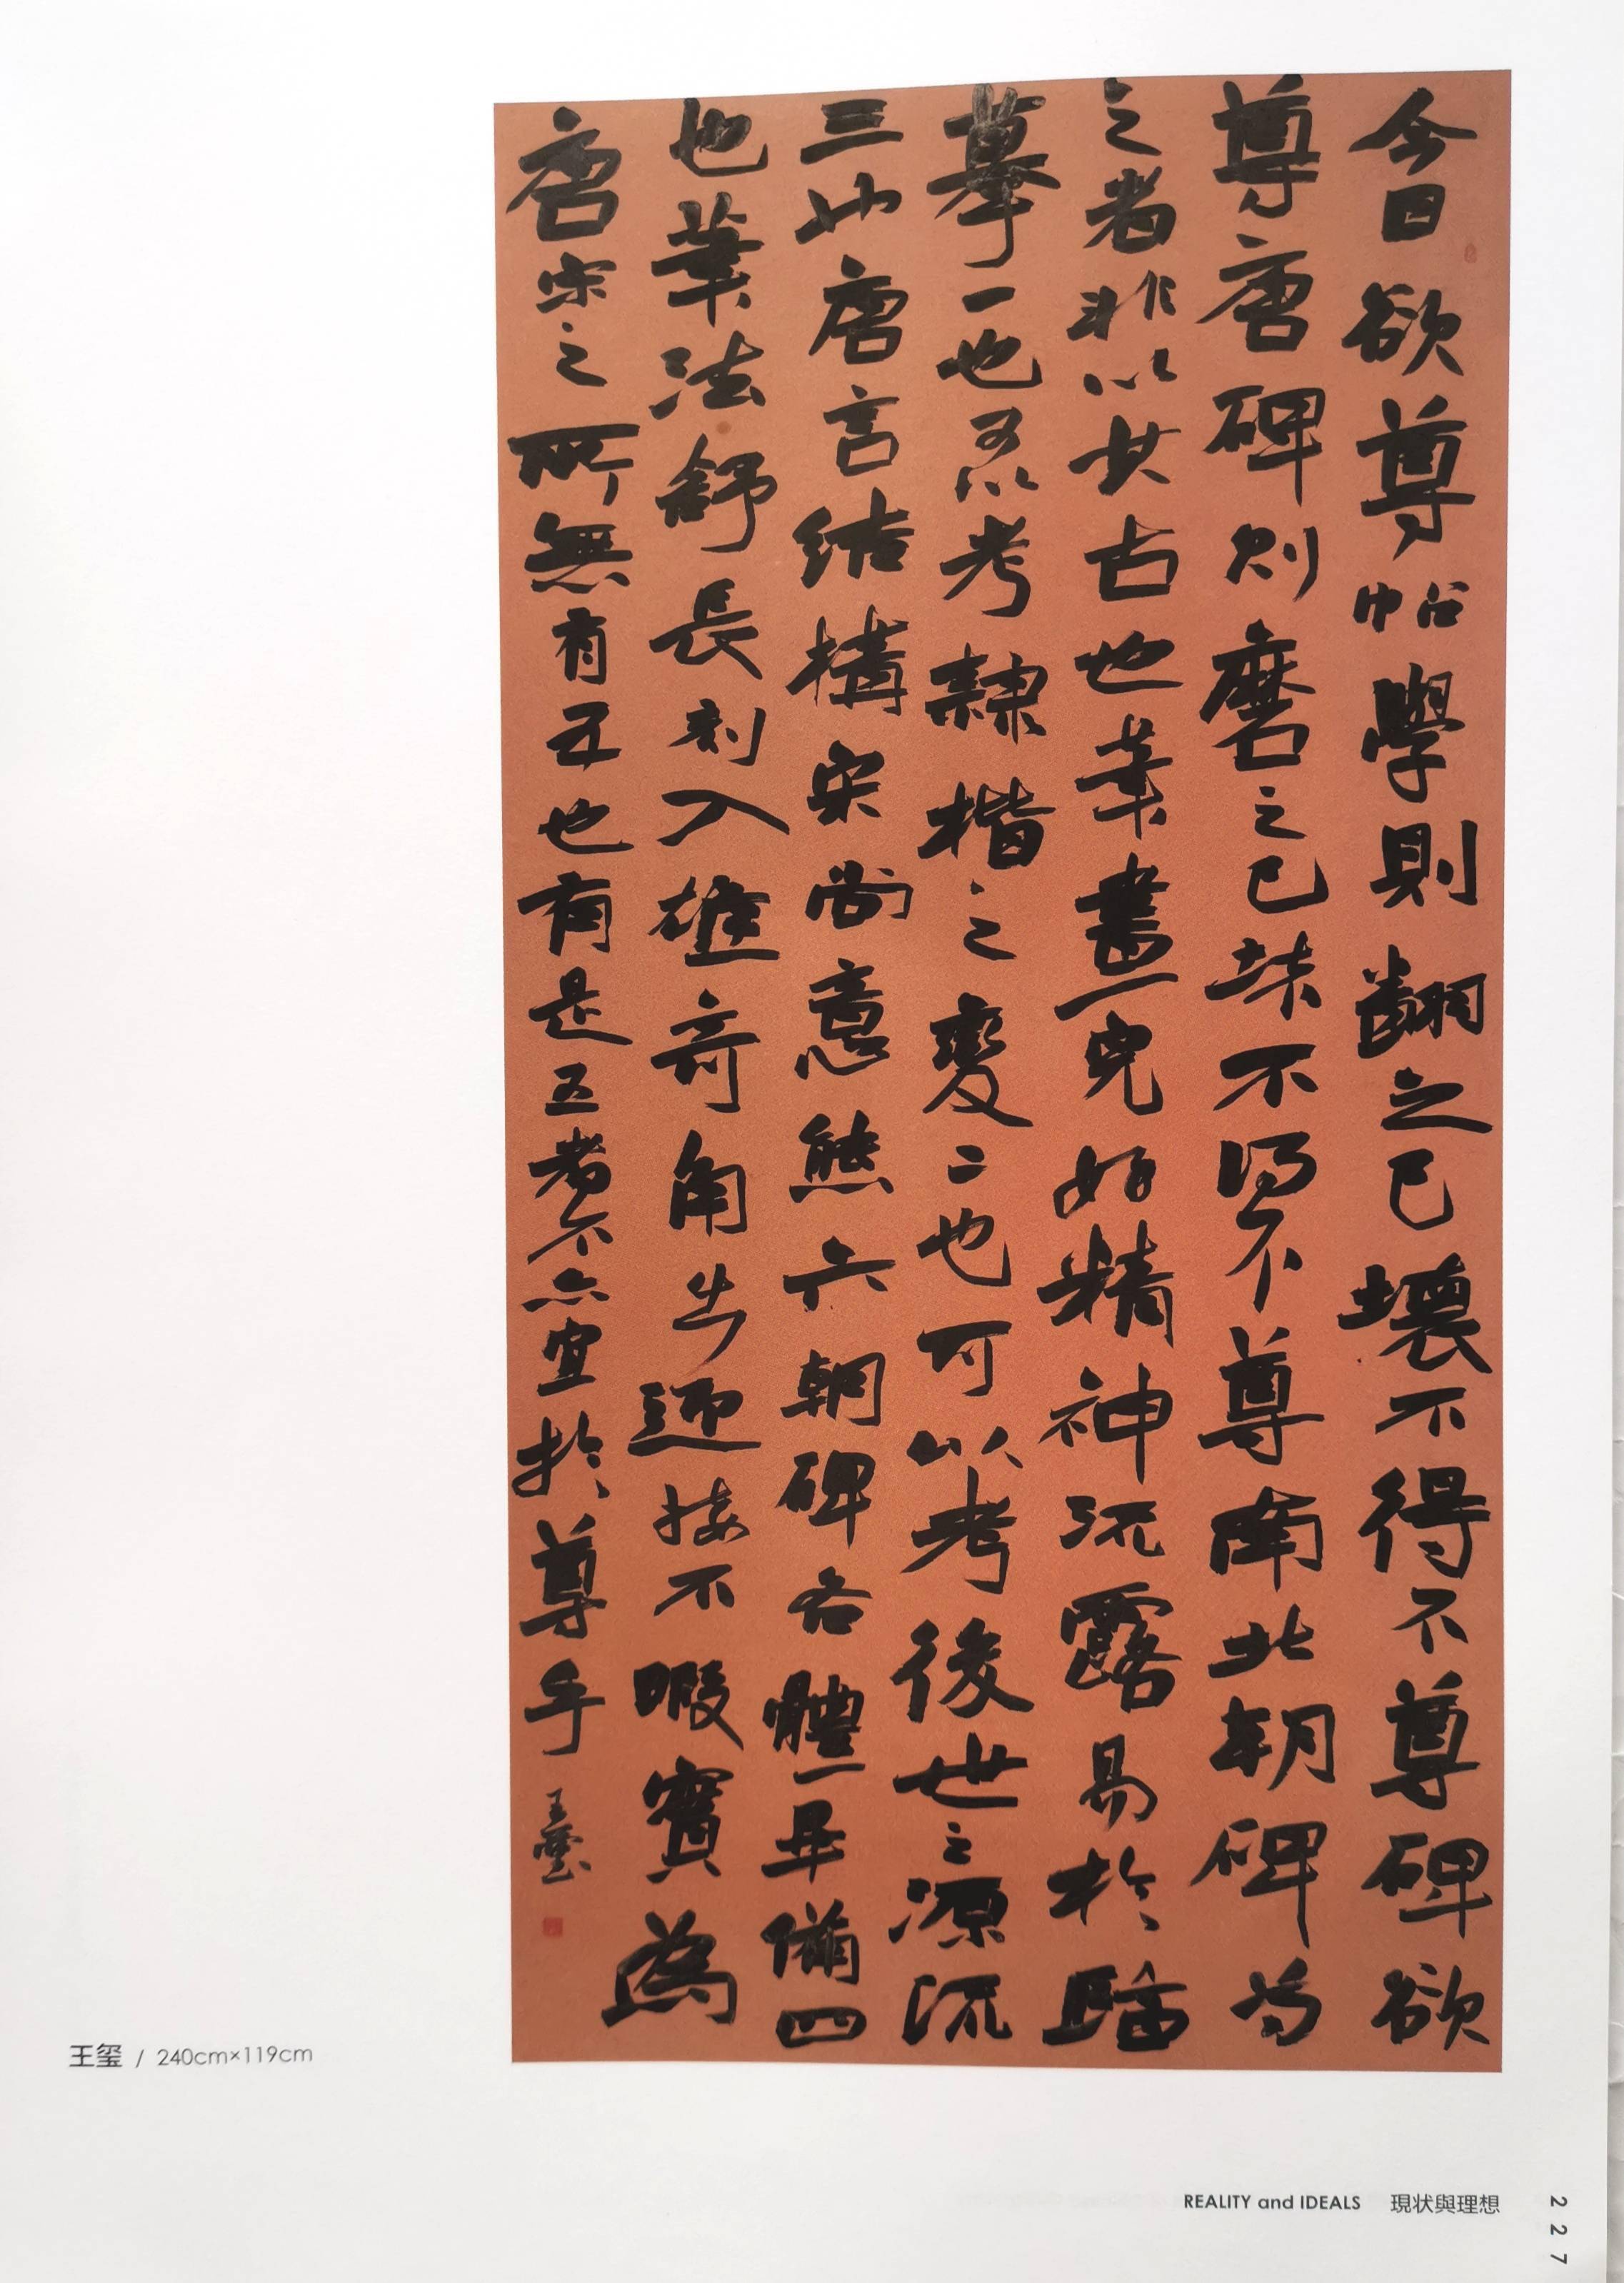 今日欲尊帖學則翻之已壞不得不尊碑欲
尊唐碑則磨之已坏不得不尊南北朝碑尊
之者非以其古也筆畫完好精神流露易於臨
摹一也可以考隸楷之變二也可以考後世之源流
三也唐言結構宋尚意態六朝碑各體畢備四
也筆法舒長刻入雄奇角出迎接不暇實為
唐宋之所無有五也有是五者不亦宜於尊乎 王璽
王玺 / 240cm×119cm
REALITY and IDEALS 現状與理想
227